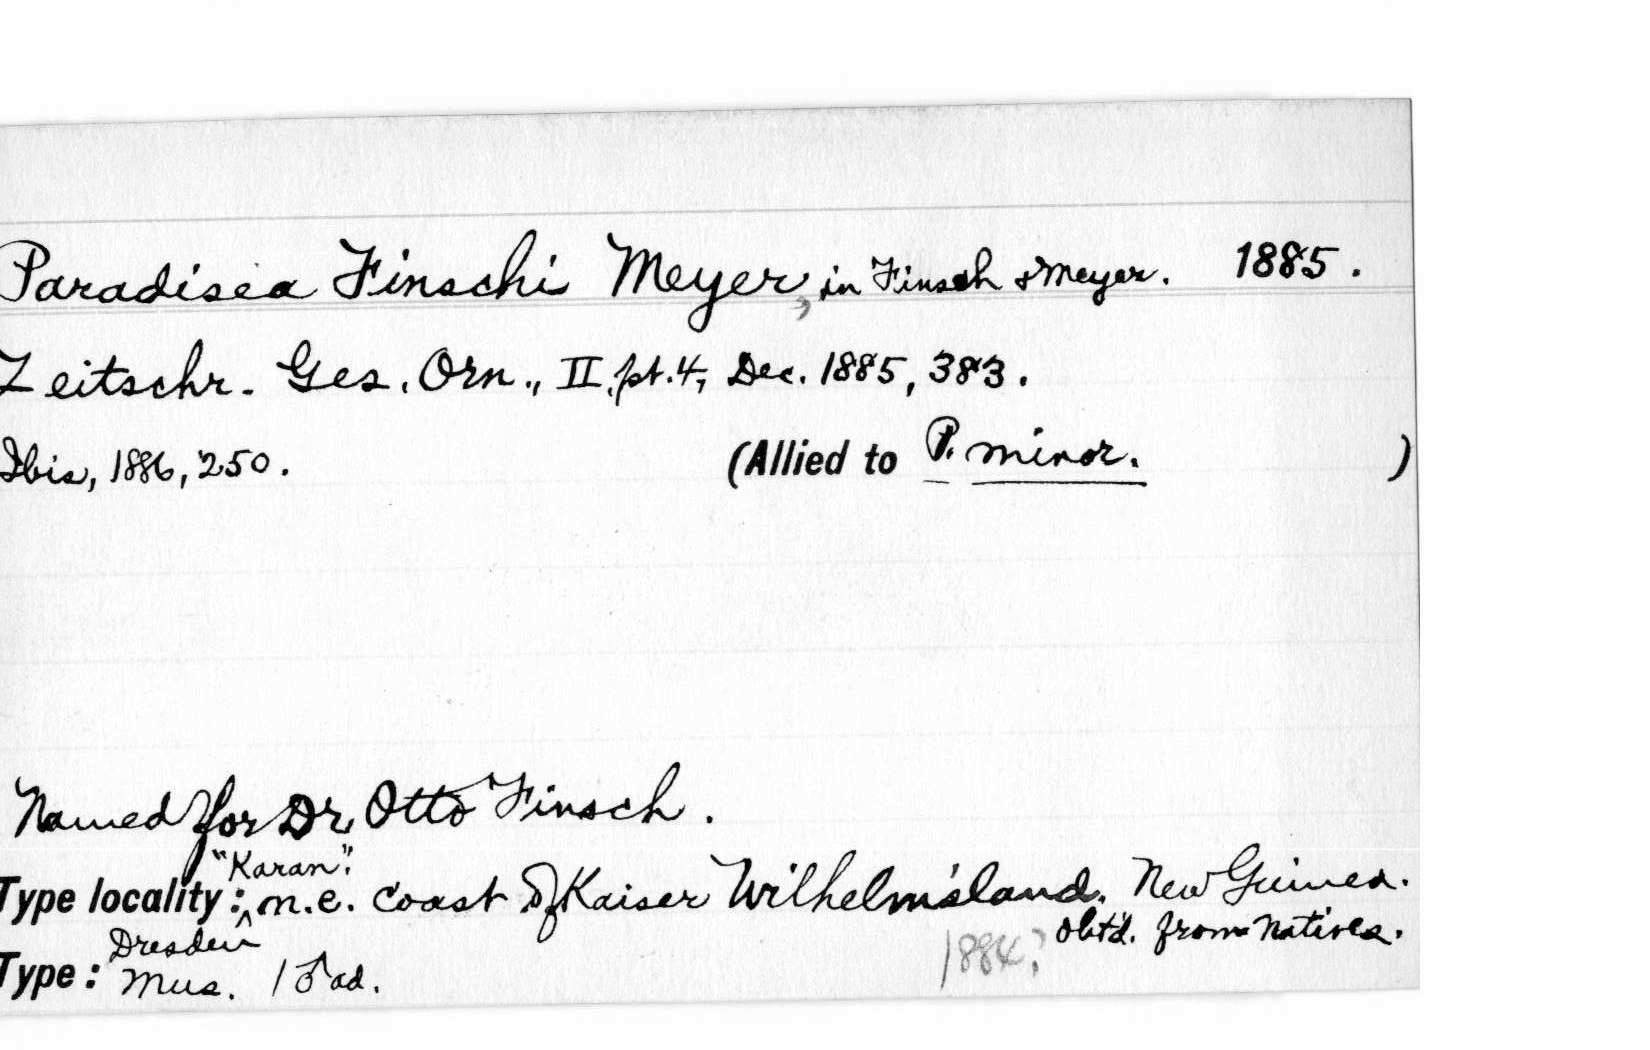 Paradisea Finschi Meyer, in Finsch & Meyer. 1885.
Zeitschr. Ges. Orn., II, pt. 4, Dec. 1885, 383.
Ibis, 1886, 250. (Allied to P. minor. )
Named for Dr. Otto Finsch.
"Karan".
Type locality: ^ n.e. coast of Kaiser Wilhelmsland, New Guinea.
obt'd. from natives.
1884?
Type: Dresden Mus. 1 ♂ ad.